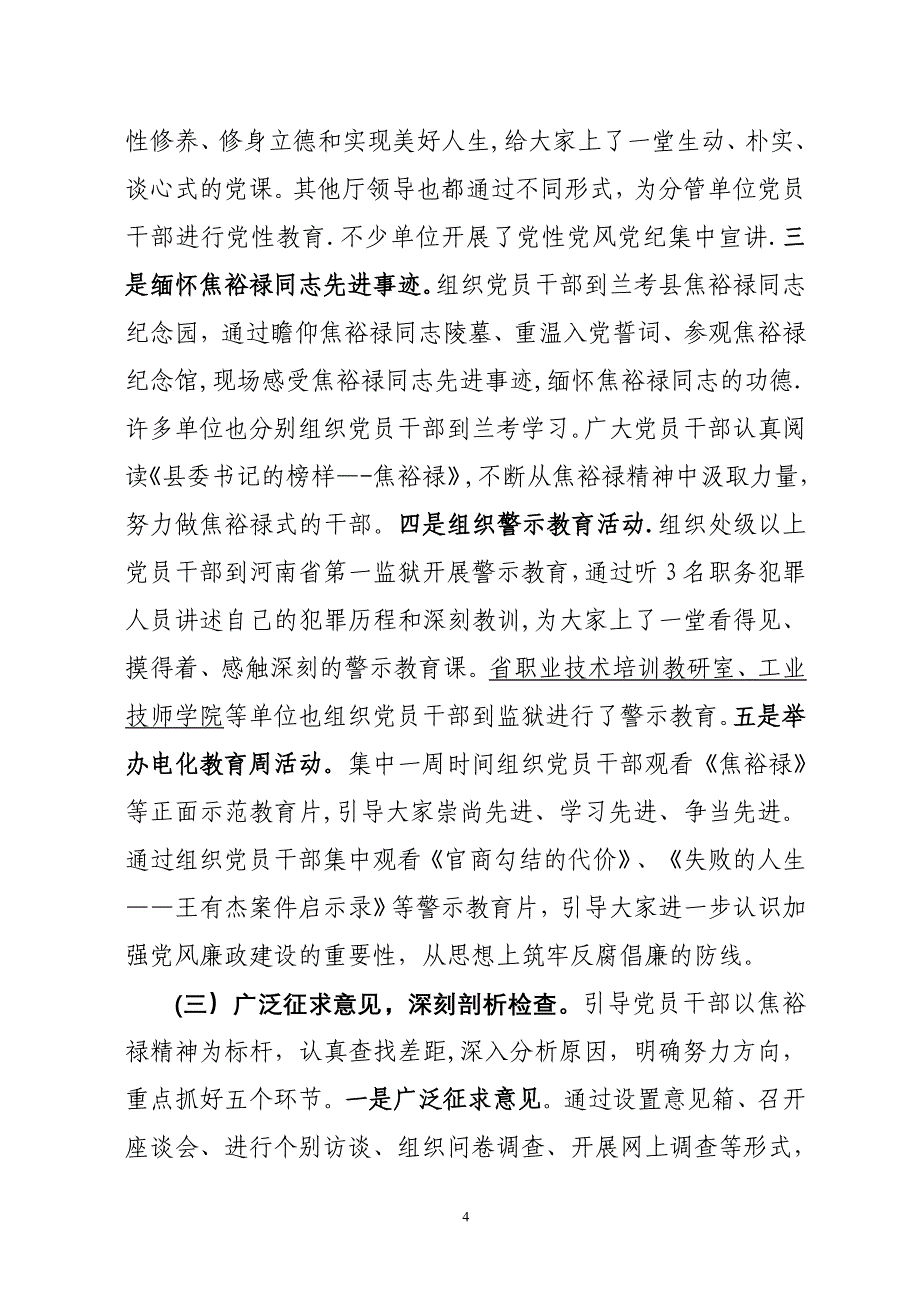 性修养、修身立德和实现美好人生,给大家上了一堂生动、朴实、
谈心式的党课。其他厅领导也都通过不同形式，为分管单位党员
干部进行党性教育.不少单位开展了党性党风党纪集中宣讲.三
是缅怀焦裕禄同志先进事迹。组织党员干部到兰考县焦裕禄同志
纪念园，通过瞻仰焦裕禄同志陵墓、重温入党誓词、参观焦裕禄
纪念馆,现场感受焦裕禄同志先进事迹,缅怀焦裕禄同志的功德.
许多单位也分别组织党员干部到兰考学习。广大党员干部认真阅
读《县委书记的榜样—-焦裕禄》,不断从焦裕禄精神中汲取力量，
努力做焦裕禄式的干部。四是组织警示教育活动.组织处级以上
党员干部到河南省第一监狱开展警示教育,通过听 3 名职务犯罪
人员讲述自己的犯罪历程和深刻教训,为大家上了一堂看得见、
摸得着、感触深刻的警示教育课。省职业技术培训教研室、工业
技师学院等单位也组织党员干部到监狱进行了警示教育。五是举
办电化教育周活动。集中一周时间组织党员干部观看《焦裕禄》
等正面示范教育片,引导大家崇尚先进、学习先进、争当先进。
通过组织党员干部集中观看《官商勾结的代价》、《失败的人生
——王有杰案件启示录》等警示教育片，引导大家进一步认识加
强党风廉政建设的重要性，从思想上筑牢反腐倡廉的防线。
(三）广泛征求意见，深刻剖析检查。引导党员干部以焦裕
禄精神为标杆，认真查找差距,深入分析原因，明确努力方向，
重点抓好五个环节。一是广泛征求意见。通过设置意见箱、召开
座谈会、进行个别访谈、组织问卷调查、开展网上调查等形式，
4